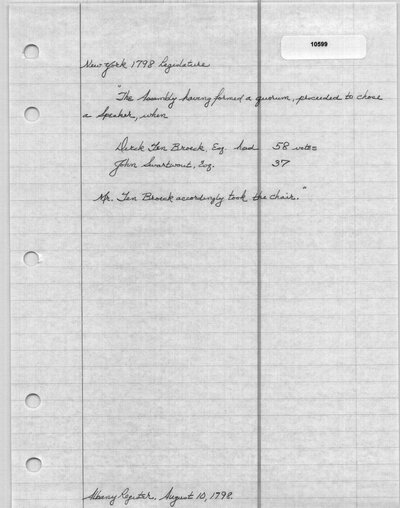 10599
New York 1798 Legislature
"The Assembly having formed a quorum, proceeded to chose
a Speaker, when
Dirck Ten Broeck, Esq. had 58 votes
John Swartwout, Esq. 37
Mr. Ten Broeck accordingly took the chair."
Albany Register. August 10, 1798.